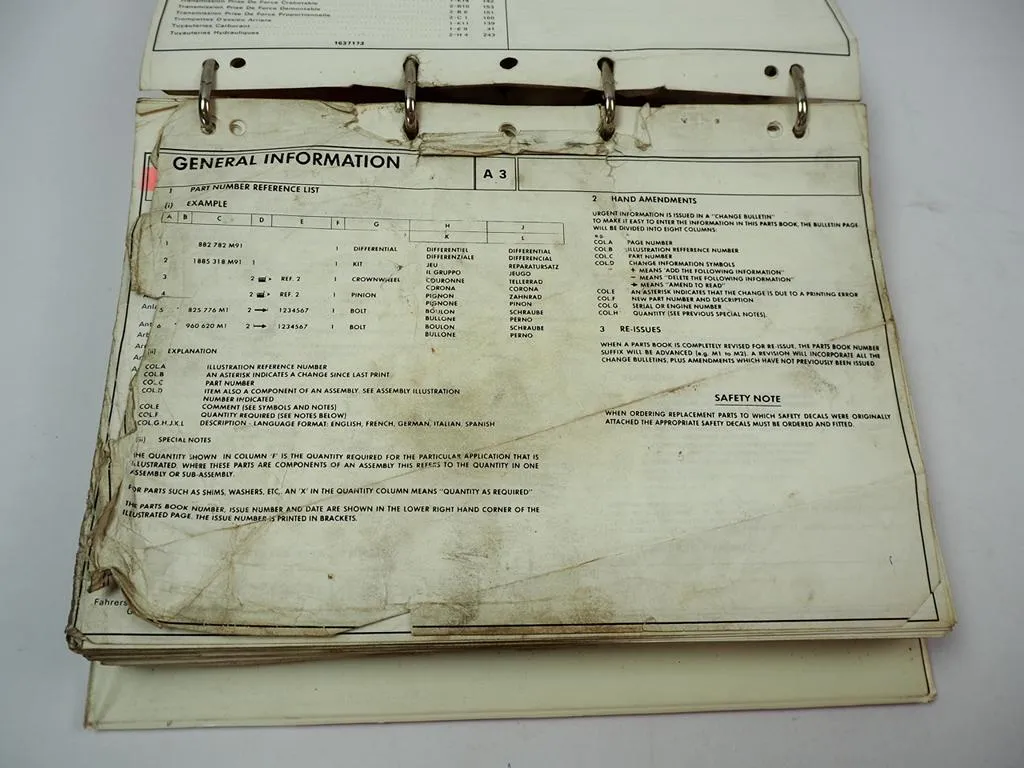 Transmission Prise De Force Demontable 2-B10 153
Transmission Prise De Force Proportionnelle 2-B 5 151
Trompettes D'essieu Arriere 2-C 1 160
Tuyauteries Carburant 1-K11 139
Tuyauteries Hydrauliques 2-H 4 243
1637173
GENERAL INFORMATION
A 3
1 PART NUMBER REFERENCE LIST
(i) EXAMPLE
A B C D E F G H J
K L
1 882 782 M91 1 DIFFERENTIAL DIFFERENTIEL DIFFERENTIAL
DIFFERENZIALE DIFFERENCIAL
2 1885 318 M91 1 1 KIT JEU REPARATURSATZ
IL GRUPPO JEUGO
3 2 REF. 2 1 CROWNWHEEL COURONNE TELLERRAD
CORONA CORONA
4 2 REF. 2 1 PINION PIGNON ZAHNRAD
PIGNONE PINON
5 825 776 M1 2 → 1234567 1 BOLT BOULON SCHRAUBE
BULLONE PERNO
6 960 620 M1 2 → 1234567 1 BOLT BOULON SCHRAUBE
BULLONE PERNO
(ii) EXPLANATION
COL.A ILLUSTRATION REFERENCE NUMBER
COL.B AN ASTERISK INDICATES A CHANGE SINCE LAST PRINT
COL.C PART NUMBER
COL.D ITEM ALSO A COMPONENT OF AN ASSEMBLY. SEE ASSEMBLY ILLUSTRATION
NUMBER INDICATED
COL.E COMMENT (SEE SYMBOLS AND NOTES)
COL.F QUANTITY REQUIRED (SEE NOTES BELOW)
COL.G.H.J.K.L DESCRIPTION - LANGUAGE FORMAT: ENGLISH, FRENCH, GERMAN, ITALIAN, SPANISH
(iii) SPECIAL NOTES
THE QUANTITY SHOWN IN COLUMN 'F' IS THE QUANTITY REQUIRED FOR THE PARTICULAR APPLICATION THAT IS
ILLUSTRATED. WHERE THESE PARTS ARE COMPONENTS OF AN ASSEMBLY THIS REFERS TO THE QUANTITY IN ONE
ASSEMBLY OR SUB-ASSEMBLY.
FOR PARTS SUCH AS SHIMS, WASHERS, ETC, AN 'X' IN THE QUANTITY COLUMN MEANS "QUANTITY AS REQUIRED"
THE PARTS BOOK NUMBER, ISSUE NUMBER AND DATE ARE SHOWN IN THE LOWER RIGHT HAND CORNER OF THE
ILLUSTRATED PAGE. THE ISSUE NUMBER IS PRINTED IN BRACKETS.
Fahrers
2 HAND AMENDMENTS
URGENT INFORMATION IS ISSUED IN A "CHANGE BULLETIN"
TO MAKE IT EASY TO ENTER THE INFORMATION IN THIS PARTS BOOK, THE BULLETIN PAGE
WILL BE DIVIDED INTO EIGHT COLUMNS:
e.g.
COL.A PAGE NUMBER
COL.B ILLUSTRATION REFERENCE NUMBER
COL.C PART NUMBER
COL.D CHANGE INFORMATION SYMBOLS
+ MEANS "ADD THE FOLLOWING INFORMATION"
− MEANS "DELETE THE FOLLOWING INFORMATION"
→ MEANS "AMEND TO READ"
COL.E AN ASTERISK INDICATES THAT THE CHANGE IS DUE TO A PRINTING ERROR
COL.F NEW PART NUMBER AND DESCRIPTION
COL.G SERIAL OR ENGINE NUMBER
COL.H QUANTITY (SEE PREVIOUS SPECIAL NOTES).
3 RE-ISSUES
WHEN A PARTS BOOK IS COMPLETELY REVISED FOR RE-ISSUE, THE PARTS BOOK NUMBER
SUFFIX WILL BE ADVANCED (e.g. M1 to M2). A REVISION WILL INCORPORATE ALL THE
CHANGE BULLETINS, PLUS AMENDMENTS WHICH HAVE NOT PREVIOUSLY BEEN ISSUED
SAFETY NOTE
WHEN ORDERING REPLACEMENT PARTS TO WHICH SAFETY DECALS WERE ORIGINALLY
ATTACHED THE APPROPRIATE SAFETY DECALS MUST BE ORDERED AND FITTED.